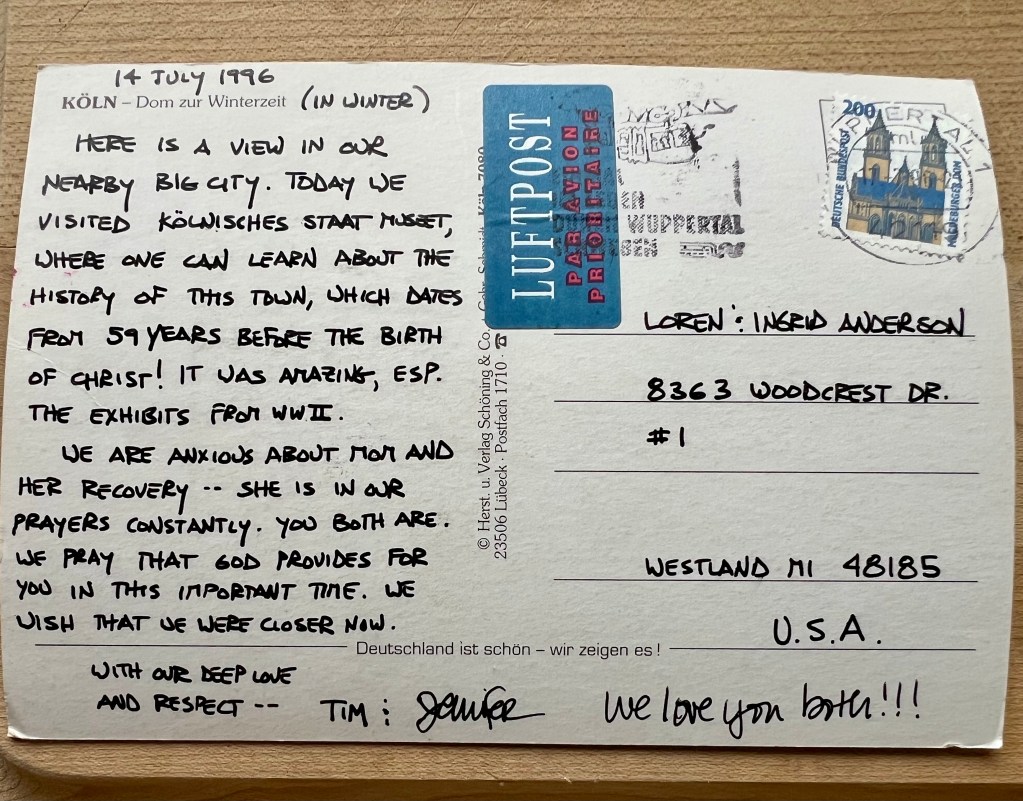 14 JULY 1996
KÖLN – Dom zur Winterzeit (IN WINTER)
HERE IS A VIEW IN OUR
NEARBY BIG CITY. TODAY WE
VISITED KÖLNISCHES STAAT MUSEET,
WHERE ONE CAN LEARN ABOUT THE
HISTORY OF THIS TOWN, WHICH DATES
FROM 59 YEARS BEFORE THE BIRTH
OF CHRIST! IT WAS AMAZING, ESP.
THE EXHIBITS FROM WWII.
WE ARE ANXIOUS ABOUT MOM AND
HER RECOVERY -- SHE IS IN OUR
PRAYERS CONSTANTLY. YOU BOTH ARE.
WE PRAY THAT GOD PROVIDES FOR
YOU IN THIS IMPORTANT TIME. WE
WISH THAT WE WERE CLOSER NOW.
Deutschland ist schön – wir zeigen es!
WITH OUR DEEP LOVE
AND RESPECT --
TIM : Jennifer
We love you both!!!
© Herst. u. Verlag Schöning & Co.
23506 Lübeck · Postfach 1710 · ☎
LUFTPOST
PAR AVION
PRIORITAIRE
WUPPERTAL
200
DEUTSCHE BUNDESPOST
MAGDEBURGER DOM
WUPPERTAL 1
LOREN : INGRID ANDERSON
8363 WOODCREST DR.
#1
WESTLAND MI 48185
U.S.A.